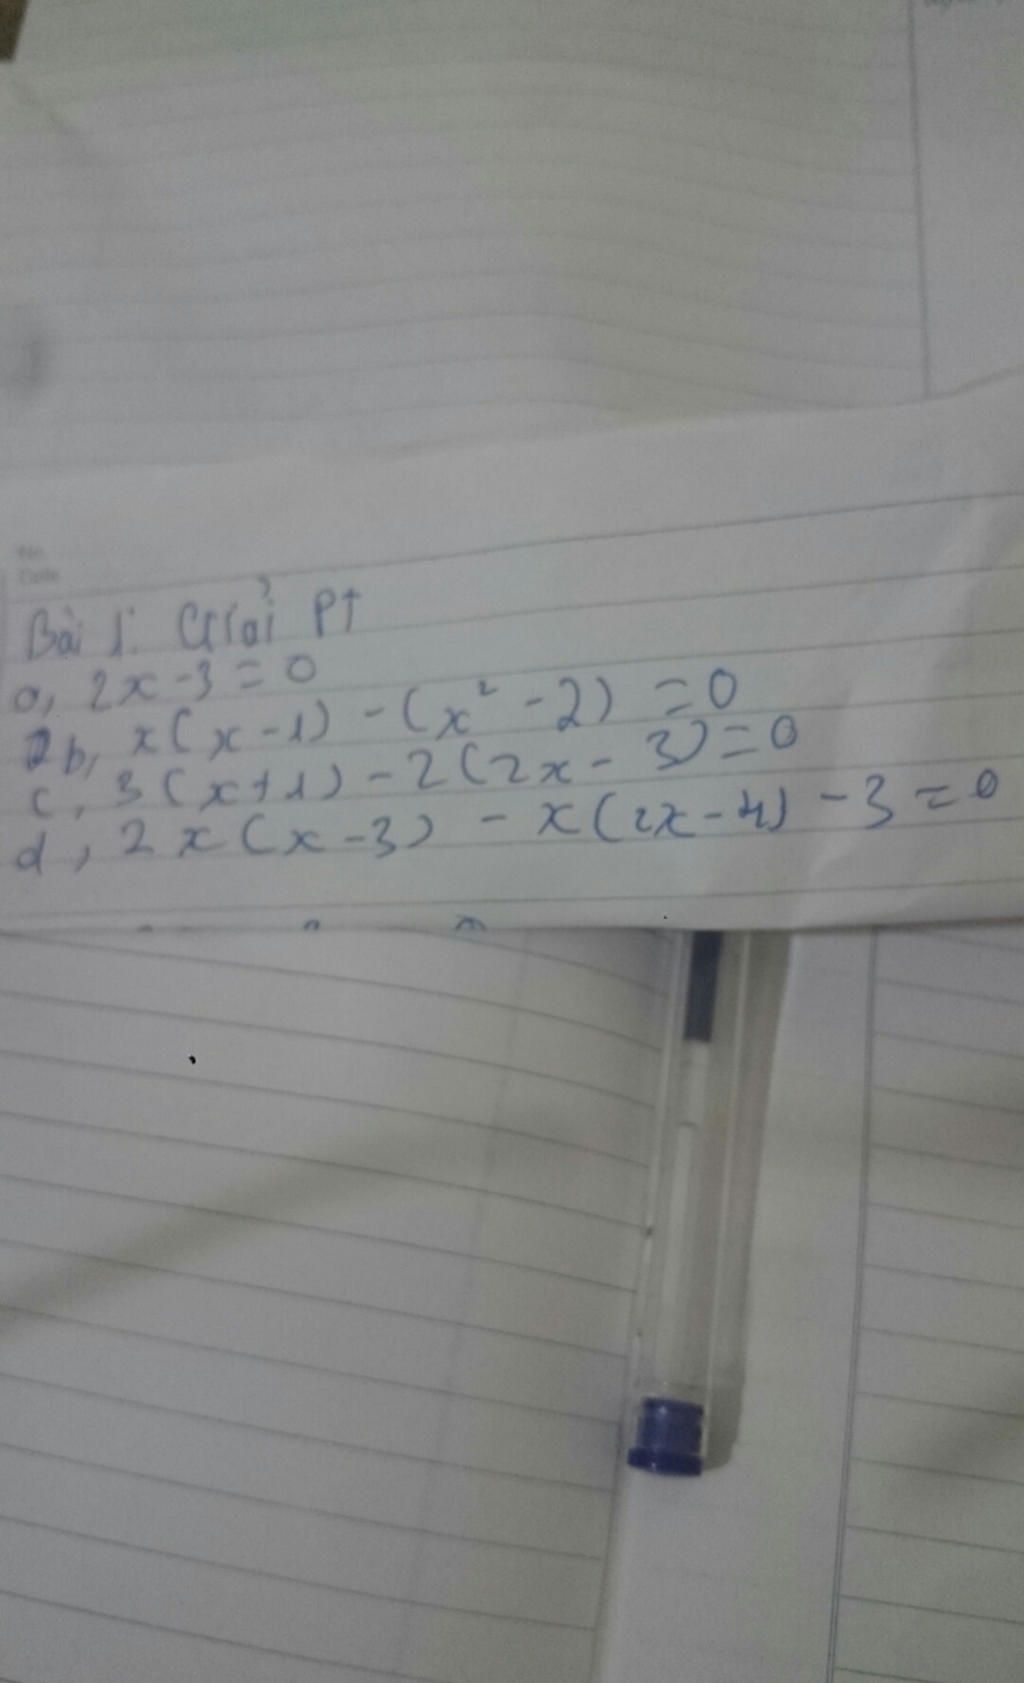 No.
Date
Bài 1: Giải PT
a, 2x - 3 = 0
b, x(x - 1) - (x² - 2) = 0
c, 3(x + 1) - 2(2x - 3) = 0
d, 2x(x - 3) - x(2x - 4) - 3 = 0